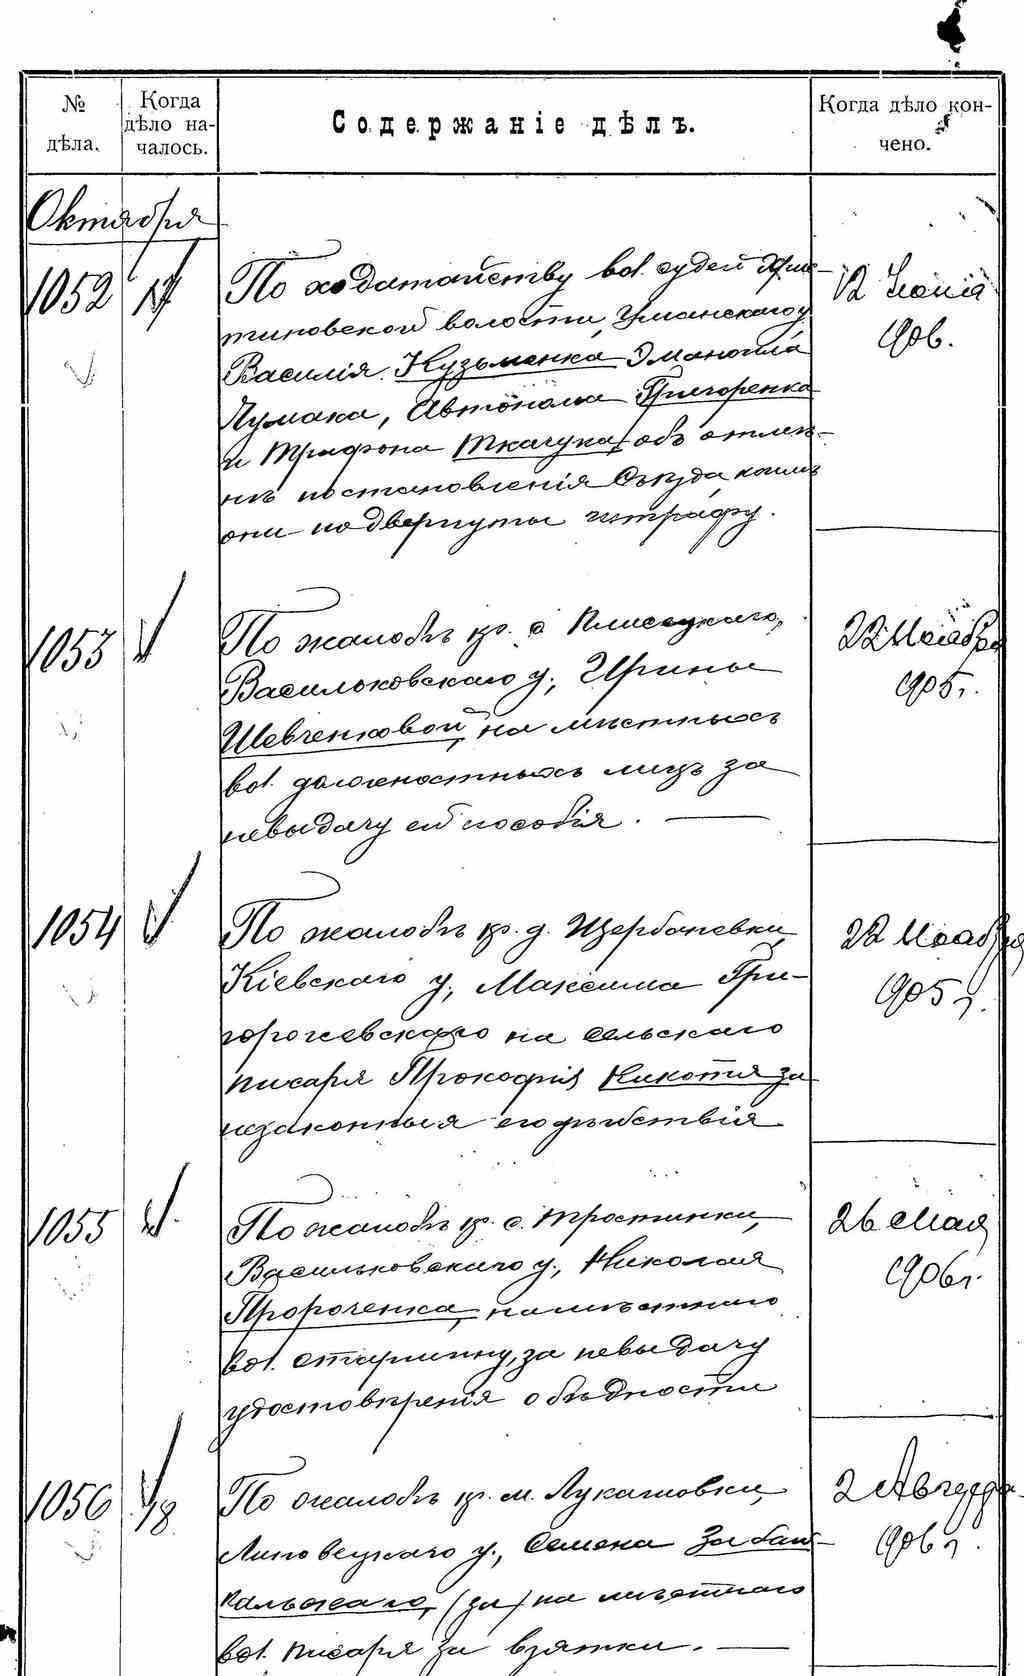 № дѣла.
Когда дѣло на-
чалось.
Содержаніе дѣлъ.
Когда дѣло кон-
чено.
Октября
1052 17
По ходатайству вол. судей Хрис-
тиновской волости, Уманскаго у.
Василія Кузьменка Эмануила
Чумака, Автонома Григоренка
и Трифона Ткачука, объ отмѣ-
нѣ постановленія Съѣзда, коимъ
они подвергнуты штрафу.
12 Іюня
1906.
1053
По жалобѣ кр. с. Плисецкаго,
Васильковскаго у., Ирины
Шевченковой, на мѣстныхъ
вол. должностныхъ лицъ за
невыдачу ей пособія.
22 Ноября
1905 г.
1054
По жалобѣ кр. д. Щербановки,
Кіевскаго у., Максима Гри-
горожевскаго на сельскаго
писаря Прокофія Никотя за
незаконныя его дѣйствія
22 Ноября
1905 г.
1055
По жалобѣ кр. с. Тростинки,
Васильковскаго у., Николая
Пророченка, на мѣстнаго
вол. старшину, за невыдачу
удостовѣренія о бѣдности
26 Мая
1906 г.
1056 18
По жалобѣ кр. м. Лукашовки,
Липовецкаго у., Семена Забай-
кальскаго, (за) на мѣстнаго
вол. писаря за взятки.
2 Августа
1906 г.